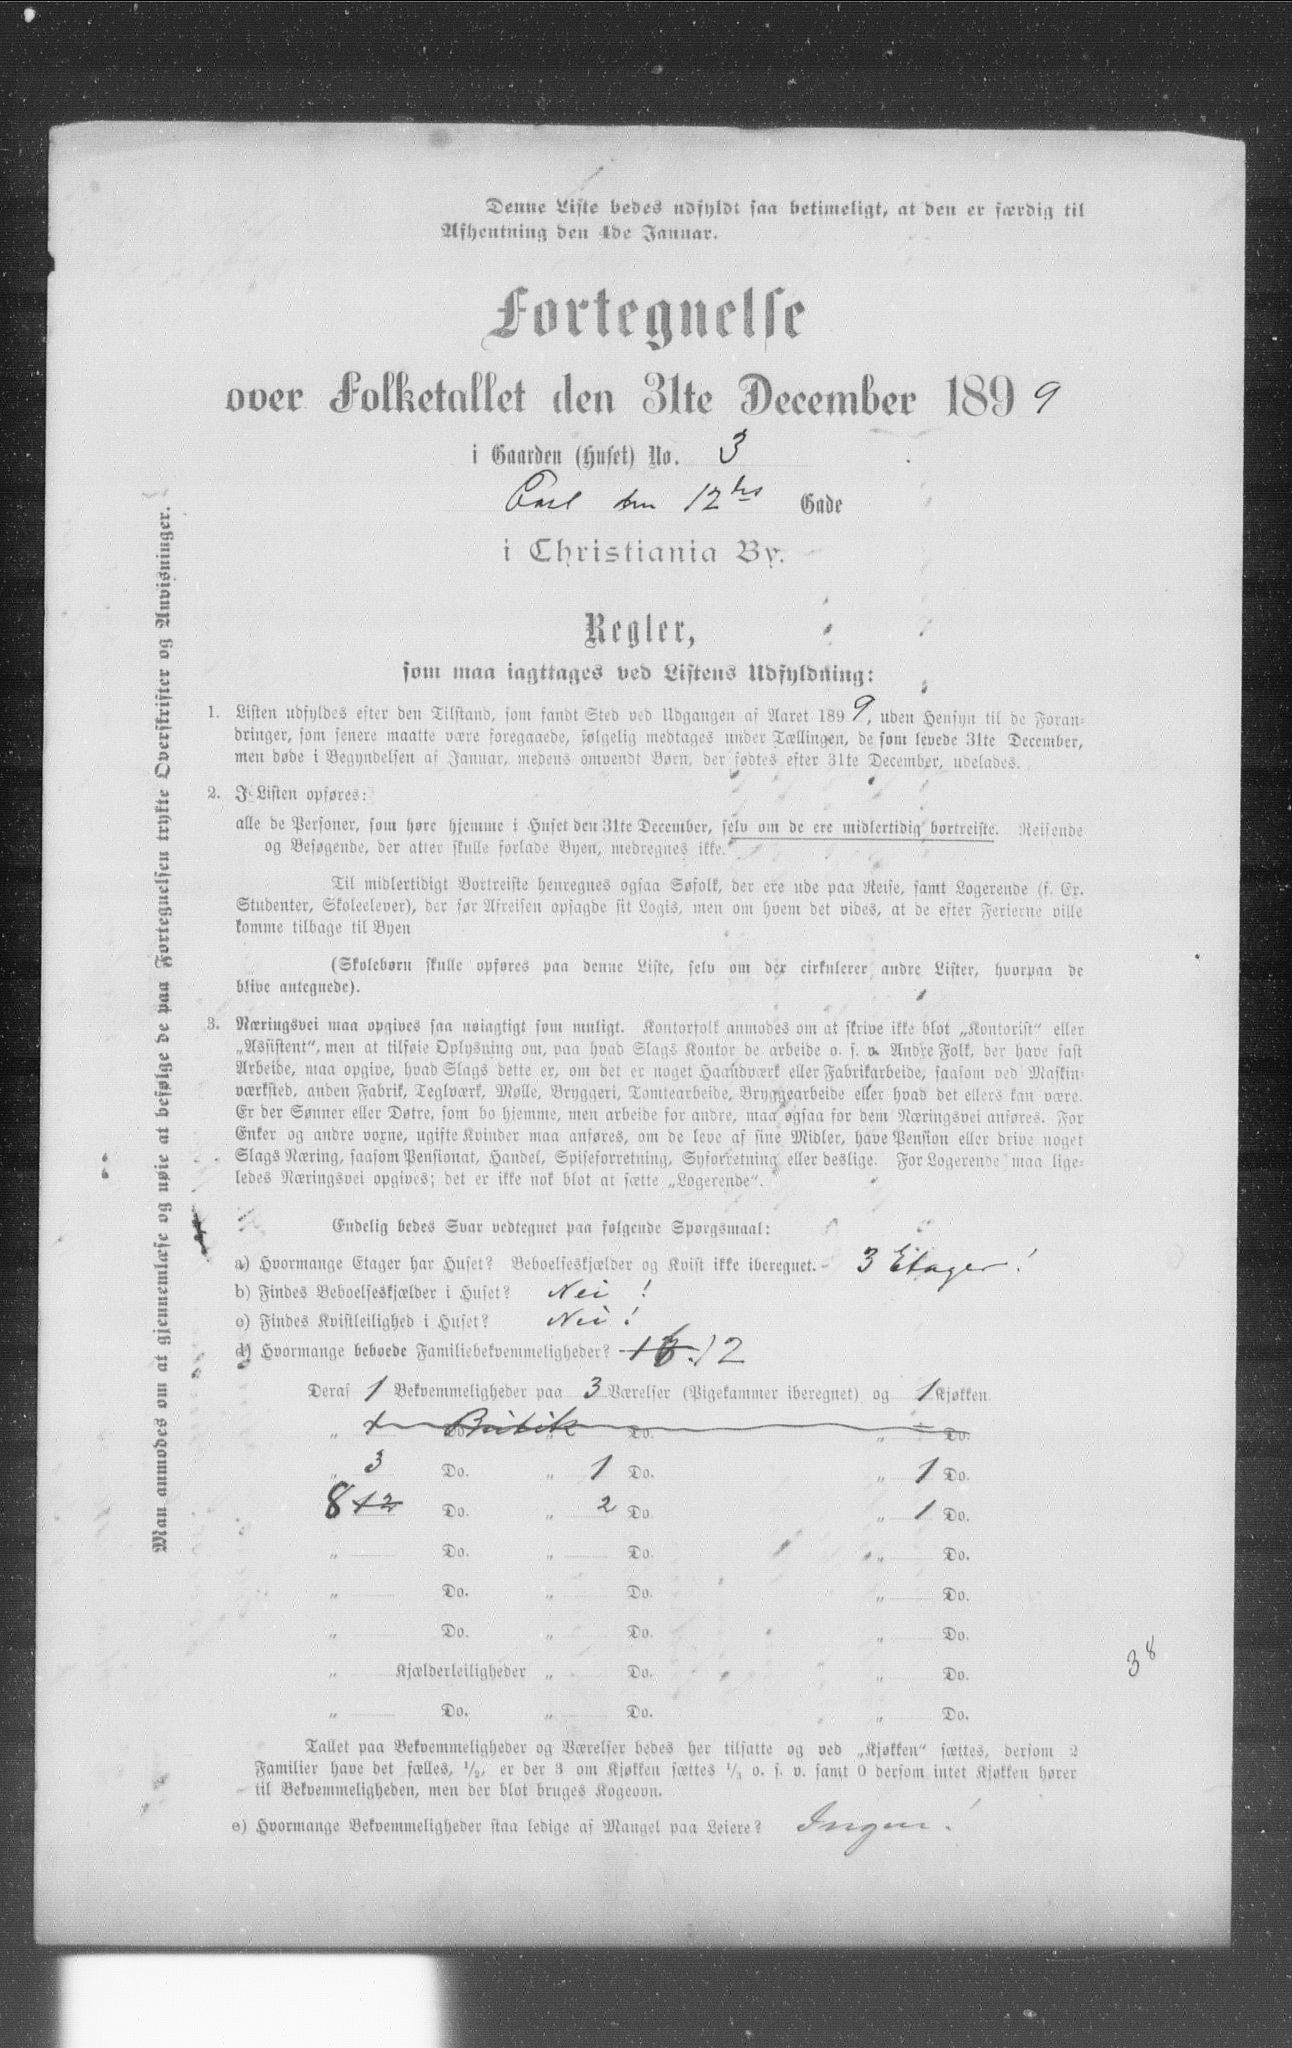 Denne Liste bedes udfyldt saa betimeligt, at den er færdig til
Afhentning den 4de Januar.
Fortegnelse
over Folketallet den 31te December 1899
i Gaarden (Huset) No. 3
Carl den 12tes Gade
i Christiania By.
Regler,
som maa iagttages ved Listens Udfyldning:
1. Listen udfyldes efter den Tilstand, som fandt Sted ved Udgangen af Aaret 1899, uden Hensyn til de Foran-
dringer, som senere maatte være foregaaede, følgelig medtages under Tællingen, de som levede 31te December,
men døde i Begyndelsen af Januar, medens omvendt Børn, der fødtes efter 31te December, udelades.
2. I Listen opføres:
alle de Personer, som høre hjemme i Huset den 31te December, selv om de ere midlertidig bortreiste. Reisende
og Besøgende, der atter skulle forlade Byen, medregnes ikke.
Til midlertidigt Bortreiste henregnes ogsaa Søfolk, der ere ude paa Reise, samt Logerende (f. Ex.
Studenter, Skoleelever), der før Afreisen opsagde sit Logis, men om hvem det vides, at de efter Ferierne ville
komme tilbage til Byen
(Skolebørn skulle opføres paa denne Liste, selv om der cirkulerer andre Lister, hvorpaa de
blive antegnede).
3. Næringsvei maa opgives saa nøiagtigt som muligt. Kontorfolk anmodes om at skrive ikke blot „Kontorist“ eller
„Assistent“, men at tilføie Oplysning om, paa hvad Slags Kontor de arbeide o. s. v. Andre Folk, der have fast
Arbeide, maa opgive, hvad Slags dette er, om det er noget Haandværk eller Fabrikarbeide, saasom ved Maskin-
værksted, anden Fabrik, Teglværk, Mølle, Bryggeri, Tomtearbeide, Bryggearbeide eller hvad det ellers kan være.
Er der Sønner eller Døtre, som bo hjemme, men arbeide for andre, maa ogsaa for dem Næringsvei anføres. For
Enker og andre voxne, ugifte Kvinder maa anføres, om de leve af sine Midler, have Pension eller drive noget
Slags Næring, saasom Pensionat, Handel, Spiseforretning, Syforretning eller deslige. For Logerende maa lige-
ledes Næringsvei opgives; det er ikke nok blot at sætte „Logerende“.
Endelig bedes Svar vedtegnet paa følgende Spørgsmaal:
a) Hvormange Etager har Huset? Beboelseskjælder og Kvist ikke iberegnet. - 3 Etager!
b) Findes Beboelseskjælder i Huset? Nei!
c) Findes Kvistleilighed i Huset? Nei!
d) Hvormange beboede Familiebekvemmeligheder? 16. 12
Deraf 1 Bekvemmeligheder paa 3 Værelser (Pigekammer iberegnet) og 1 Kjøkken
„ Do. Butik „ Do. „ Do.
„ 3 Do. „ 1 Do. „ 1 Do.
8 12 Do. „ 2 Do. „ 1 Do.
„ Do. „ Do. „ Do.
„ Do. „ Do. „ Do.
„ Do. „ Do. „ Do.
„ Kjælderleiligheder „ Do. „ Do.
„ Do. „ Do. „ Do.
Tallet paa Bekvemmeligheder og Værelser bedes her tilsatte og ved „Kjøkken“ sættes, dersom 2
Familier have det fælles, 1/2, er der 3 om Kjøkken sættes 1/3 o. s. v. samt 0 dersom intet Kjøkken hører
til Bekvemmeligheden, men der blot bruges Kogeovn.
e) Hvormange Bekvemmeligheder staa ledige af Mangel paa Leiere? Ingen!
38
Man anmodes om at gjennemlæse og nøie at besjøge de paa Fortegnelsen trykte Overskrifter og Anvisninger.